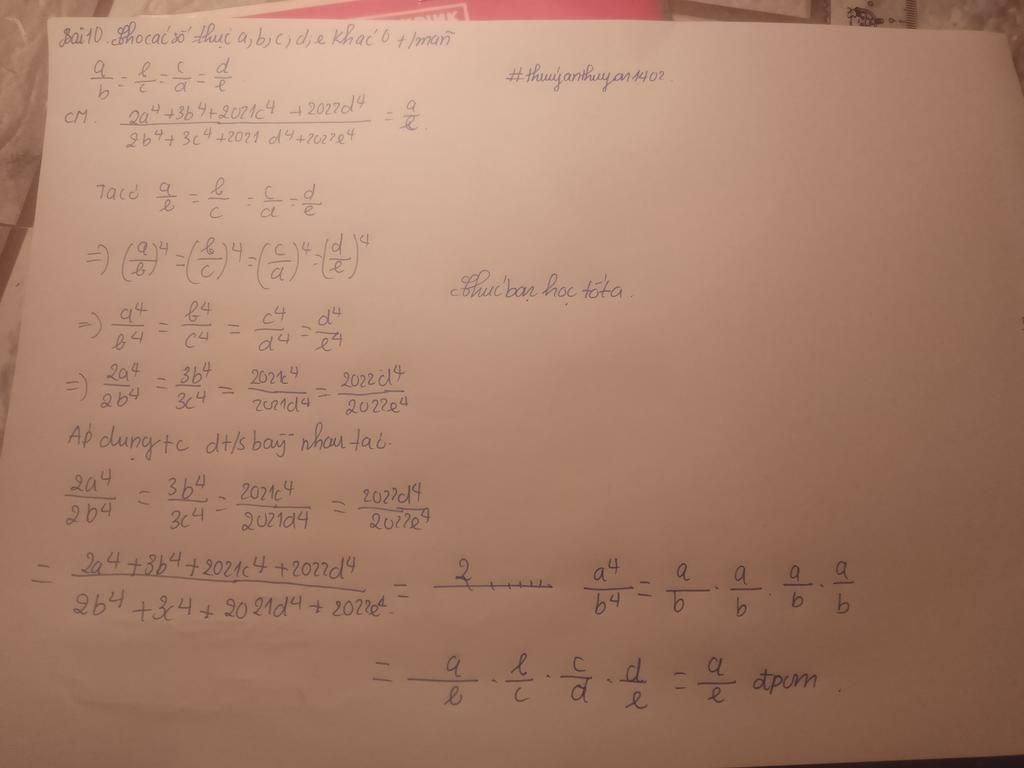 Bài 10. Cho các số thực a, b, c, d, e khác 0 t/mãn
a/b = b/c = c/d = d/e
#thuyanthuyan1402.
CM. (2a⁴+3b⁴+2021c⁴+2022d⁴)/(2b⁴+3c⁴+2021d⁴+2022e⁴) = a/e.
Ta có a/b = b/c = c/d = d/e
=> (a/b)⁴ = (b/c)⁴ = (c/d)⁴ = (d/e)⁴
Chúc bạn học tốt ạ.
=> a⁴/b⁴ = b⁴/c⁴ = c⁴/d⁴ = d⁴/e⁴
=> 2a⁴/2b⁴ = 3b⁴/3c⁴ = 2021c⁴/2021d⁴ = 2022d⁴/2022e⁴
Áp dụng t c dt/s bằng nhau ta có.
2a⁴/2b⁴ = 3b⁴/3c⁴ = 2021c⁴/2021d⁴ = 2022d⁴/2022e⁴
= (2a⁴+3b⁴+2021c⁴+2022d⁴)/(2b⁴+3c⁴+2021d⁴+2022e⁴) = a⁴/b⁴ = a/b . a/b . a/b . a/b
= a/b . b/c . c/d . d/e = a/e đpcm.